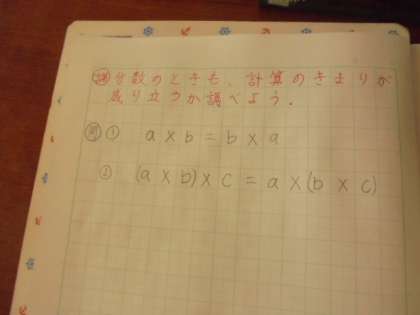 課 分数のときも、計算のきまりが
成り立つか調べよう。
問 ① a×b=b×a
② (a×b)×c=a×(b×c)